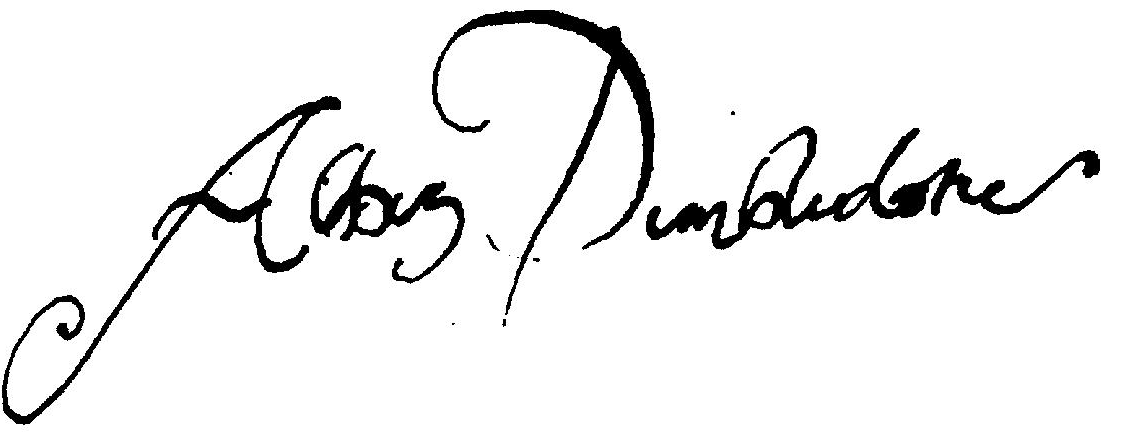 Albus Dumbledore